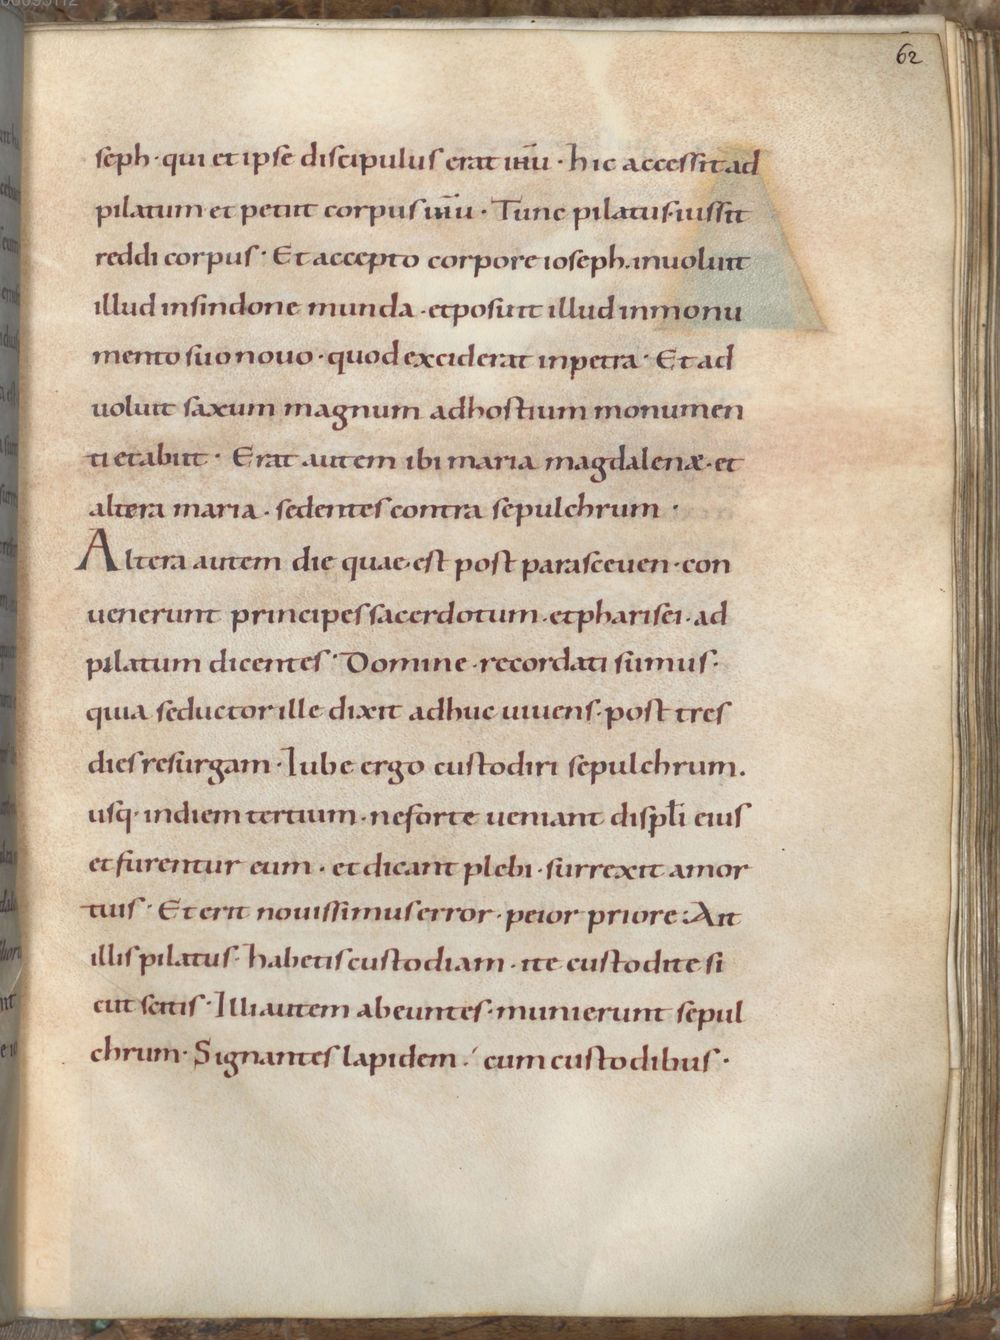 62
seph · qui et ipse discipulus erat ihu · hic accessit ad
pilatum et petiit corpus ihu · Tunc pilatus · iussit
reddi corpus · Et accepto corpore ioseph · inuoluit
illud insindone munda · et posuit illud inmonu
mento suo nouo · quod exciderat inpetra · Et ad
uoluit saxum magnum adhostium monumen
ti et abiit · Erat autem ibi maria magdalenæ · et
altera maria · sedentes contra sepulchrum ·
Altera autem die quae · est post parasceuen · con
uenerunt principes sacerdotum · et pharisei · ad
pilatum dicentes · Domine · recordati sumus ·
quia seductor ille dixit adhuc uiuens · post tres
dies resurgam · Iube ergo custodiri sepulchrum .
usq · indiem tertium · ne forte ueniant displi eius
et furentur eum · et dicant plebi · surrexit amor
tuis · Et erit nouissimus error · peior priore : Ait
illis pilatus · habetis custodiam · ite custodite si
cut scitis · Illi autem abeuntes · munierunt sepul
chrum · Signantes lapidem · cum custodibus ·